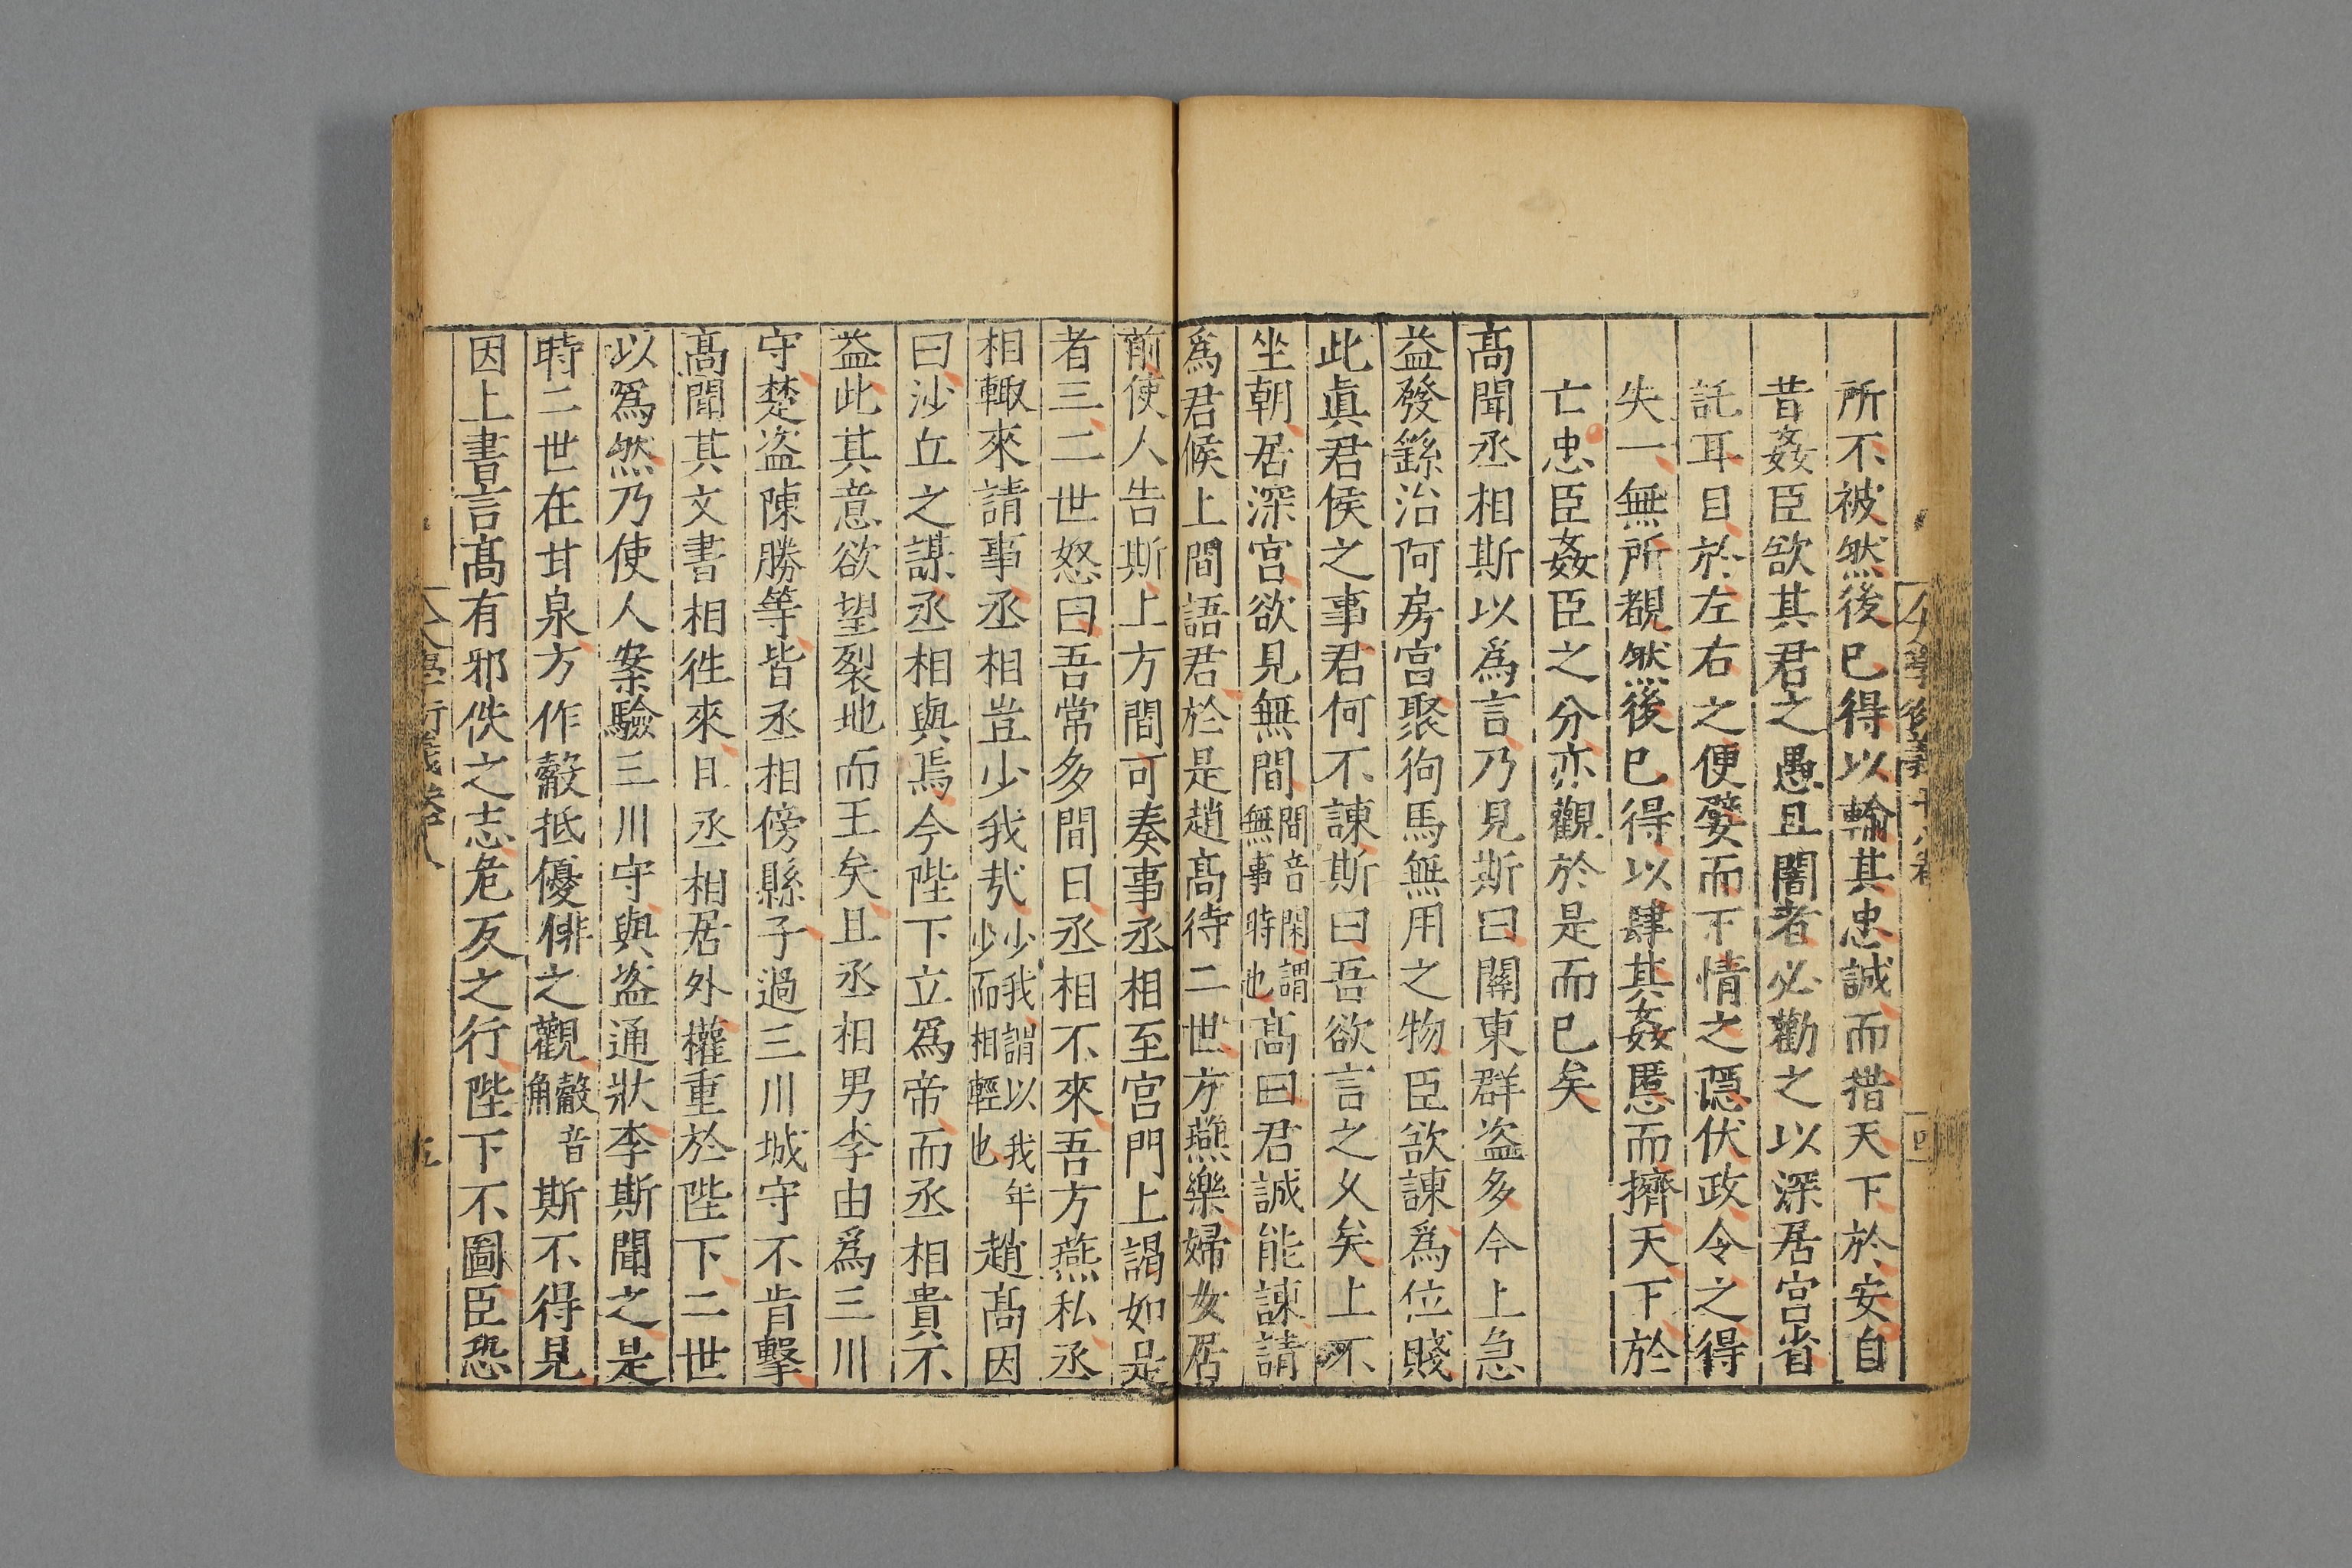 所不被然後已得以輸其忠誠而措天下於安自
昔姦臣欲其君之愚且闇者必勸之以深居宮省
託耳目於左右之便嬖而下情之隱伏政令之得
失一無所覩然後已得以肆其姦慝而擠天下於
亡忠臣姦臣之分亦觀於是而已矣
高聞丞相斯以爲言乃見斯曰關東群盗多今上急
益發繇治阿房宮聚狗馬無用之物臣欲諫爲位賤
此眞君侯之事君何不諫斯曰吾欲言之乆矣上不
坐朝居深宮欲見無間間音閑謂無事時也高曰君誠能諫請
爲君候上間語君於是趙高待二世方燕樂婦女居
前使人告斯上方間可奏事丞相至宮門上謁如是
者三二世怒曰吾常多間日丞相不來吾方燕私丞
相輙來請事丞相豈少我㢤少少我謂以我年少而相輕也趙高因
曰沙丘之謀丞相與焉今陛下立爲帝而丞相貴不
益此其意欲望裂地而王矣且丞相男李由爲三川
守楚盗陳勝等皆丞相傍縣子過三川城守不肯擊
高聞其文書相徃來且丞相居外權重於陛下二世
以爲然乃使人案驗三川守與盗通狀李斯聞之是
時二世在甘泉方作觳抵優俳之觀觳音角斯不得見
因上書言高有邪佚之志危反之行陛下不圖臣恐
大學衍義卷十八
五